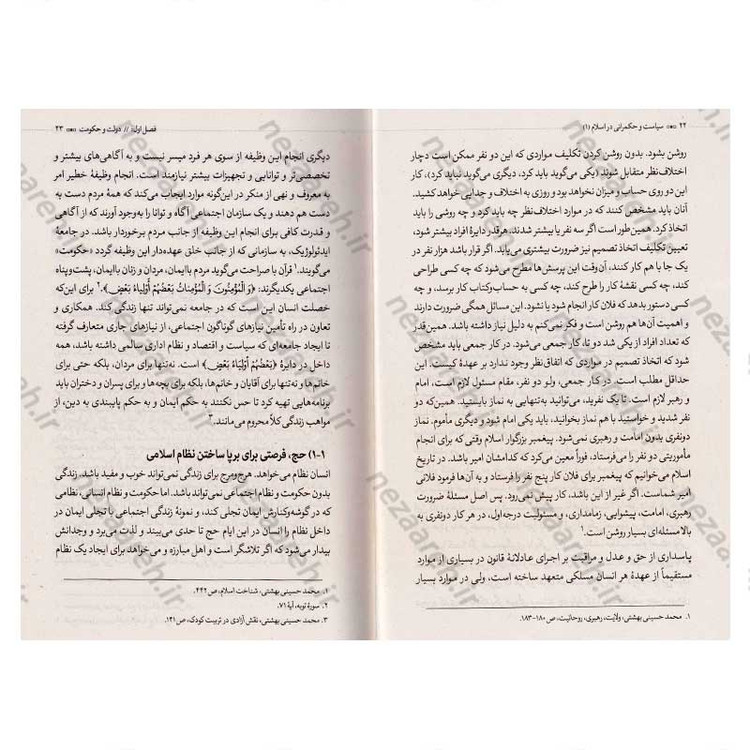 ۲۲ سیاست و حکمرانی در اسلام (۱)
روشن بشود. بدون روشن کردن تکلیف مواردی که این دو نفر ممکن است دچار
اختلاف‌نظر متقابل شوند (یکی می‌گوید باید کرد، دیگری می‌گوید نباید کرد)، کار
این دو روی حساب و میزان نخواهد بود و روزی به اختلاف و جدایی خواهد کشید.
آنان باید مشخص کنند که در موارد اختلاف‌نظر چه باید کرد و چه روشی را باید
اتخاذ کرد. همین‌طور است اگر سه نفر یا بیشتر شدند. هرقدر دایرهٔ افراد بیشتر شود،
تعیین تکلیف اتخاذ تصمیم نیز ضرورت بیشتری می‌یابد. اگر قرار باشد هزار نفر در
یک جا با هم کار کنند، آن‌وقت این پرسش‌ها مطرح می‌شود که چه کسی طراحی
کند، چه کسی نقشهٔ کار را طرح کند، چه کسی به حساب‌وکتاب کار برسد، و چه
کسی دستور بدهد که فلان کار انجام شود یا نشود. این مسائل همگی ضرورت دارند
و اهمیت آن‌ها هم روشن است و فکر نمی‌کنم به دلیل نیاز داشته باشد. همین‌قدر
که تعداد افراد از یکی شد دو تا، کار جمعی می‌شود. در کار جمعی باید مشخص
شود که اتخاذ تصمیم در مواردی که اتفاق‌نظر وجود ندارد بر عهدهٔ کیست. این
حداقل مطلب است. در کار جمعی، ولو دو نفر، مقام مسئول لازم است، امام
و رهبر لازم است. تا یک نفرید، می‌توانید به‌تنهایی به نماز بایستید. همین که دو
نفر شدید و خواستید با هم نماز بخوانید، باید یکی امام شود و دیگری مأموم. نماز
دونفری بدون امامت و رهبری نمی‌شود. پیغمبر بزرگوار اسلام وقتی که برای انجام
مأموریتی دو نفر را می‌فرستاد، فوراً معین می‌کرد که کدامشان امیر باشد. در تاریخ
اسلام می‌خوانیم که پیغمبر برای فلان کار پنج نفر را فرستاد و به آن‌ها فرمود فلانی
امیر شماست. اگر غیر از این باشد، کار پیش نمی‌رود. پس اصل مسئلهٔ ضرورت
رهبری، امامت، پیشوایی، زمامداری، و مسئولیت درجه‌اول، در هر کار دونفری به
بالا مسئله‌ای بسیار روشن است.۱
پاسداری از حق و عدل و مراقبت بر اجرای عادلانهٔ قانون در بسیاری از موارد
مستقیماً از عهدهٔ هر انسان مسلکی متعهد ساخته است، ولی در موارد بسیار
۱. محمد حسینی بهشتی، ولایت، رهبری، روحانیت، ص ۱۸۰-۱۸۳.
فصل اول: // دولت و حکومت ۲۳
دیگری انجام این وظیفه از سوی هر فرد میسر نیست و به آگاهی‌های بیشتر و
تخصصی‌تر و توانایی و تجهیزات بیشتر نیازمند است. انجام وظیفهٔ خطیر امر
به معروف و نهی از منکر در این‌گونه موارد ایجاب می‌کند که همهٔ مردم دست به
دست هم دهند و یک سازمان اجتماعی آگاه و توانا را به‌وجود آورند که از آگاهی
و قدرت کافی برای انجام این وظیفه از جانب مردم برخوردار باشد. در جامعهٔ
ایدئولوژیک، به سازمانی که از جانب خلق عهده‌دار این وظیفه گردد «حکومت»
می‌گویند.۱ قرآن با صراحت می‌گوید مردم باایمان، مردان و زنان باایمان، پشت‌وپناه
اجتماعی یکدیگرند: ﴿وَ الْمُؤْمِنُونَ وَ الْمُؤْمِنَاتُ بَعْضُهُمْ أَوْلِیَاءُ بَعْضٍ﴾.۲ برای این‌که
خصلت انسان این است که در جامعه نمی‌تواند تنها زندگی کند. همکاری و
تعاون در راه تأمین نیازهای گوناگون اجتماعی، از نیازهای جاری متعارف گرفته
تا ایجاد جامعه‌ای که سیاست و اقتصاد و نظام اداری سالمی داشته باشد، همه
داخل در دایرهٔ ﴿بَعْضُهُمْ أَوْلِیَاءُ بَعْضٍ﴾ است. نه‌تنها برای مردان، بلکه حتی برای
خانم‌ها و نه‌تنها برای آقایان و خانم‌ها، بلکه برای بچه‌ها و برای پسران و دختران باید
برنامه‌هایی تهیه کرد تا حس نکنند به حکم ایمان و به حکم پایبندی به دین، از
مواهب زندگی کلاً محروم می‌مانند.۳
۱-۱) حج، فرصتی برای برپا ساختن نظام اسلامی
انسان نظام می‌خواهد. هرج‌ومرج برای زندگی نمی‌تواند خوب و مفید باشد. زندگی
بدون حکومت و نظام اجتماعی نمی‌تواند باشد. اما حکومت و نظام انسانی، نظامی
که در گوشه‌وکنارش ایمان تجلی کند، و نمونهٔ زندگی اجتماعی با تجلی ایمان در
داخل نظام را انسان در این ایام حج تا حدی می‌بیند و لذت می‌برد و وجدانش
بیدار می‌شود که اگر تلاشگر است و اهل مبارزه و می‌خواهد برای ایجاد یک نظام
۱. محمد حسینی بهشتی، شناخت اسلام، ص ۴۴۲.
۲. سورهٔ توبه، آیهٔ ۷۱.
۳. محمد حسینی بهشتی، نقش آزادی در تربیت کودک، ص ۱۴۱.
nezaareh.ir